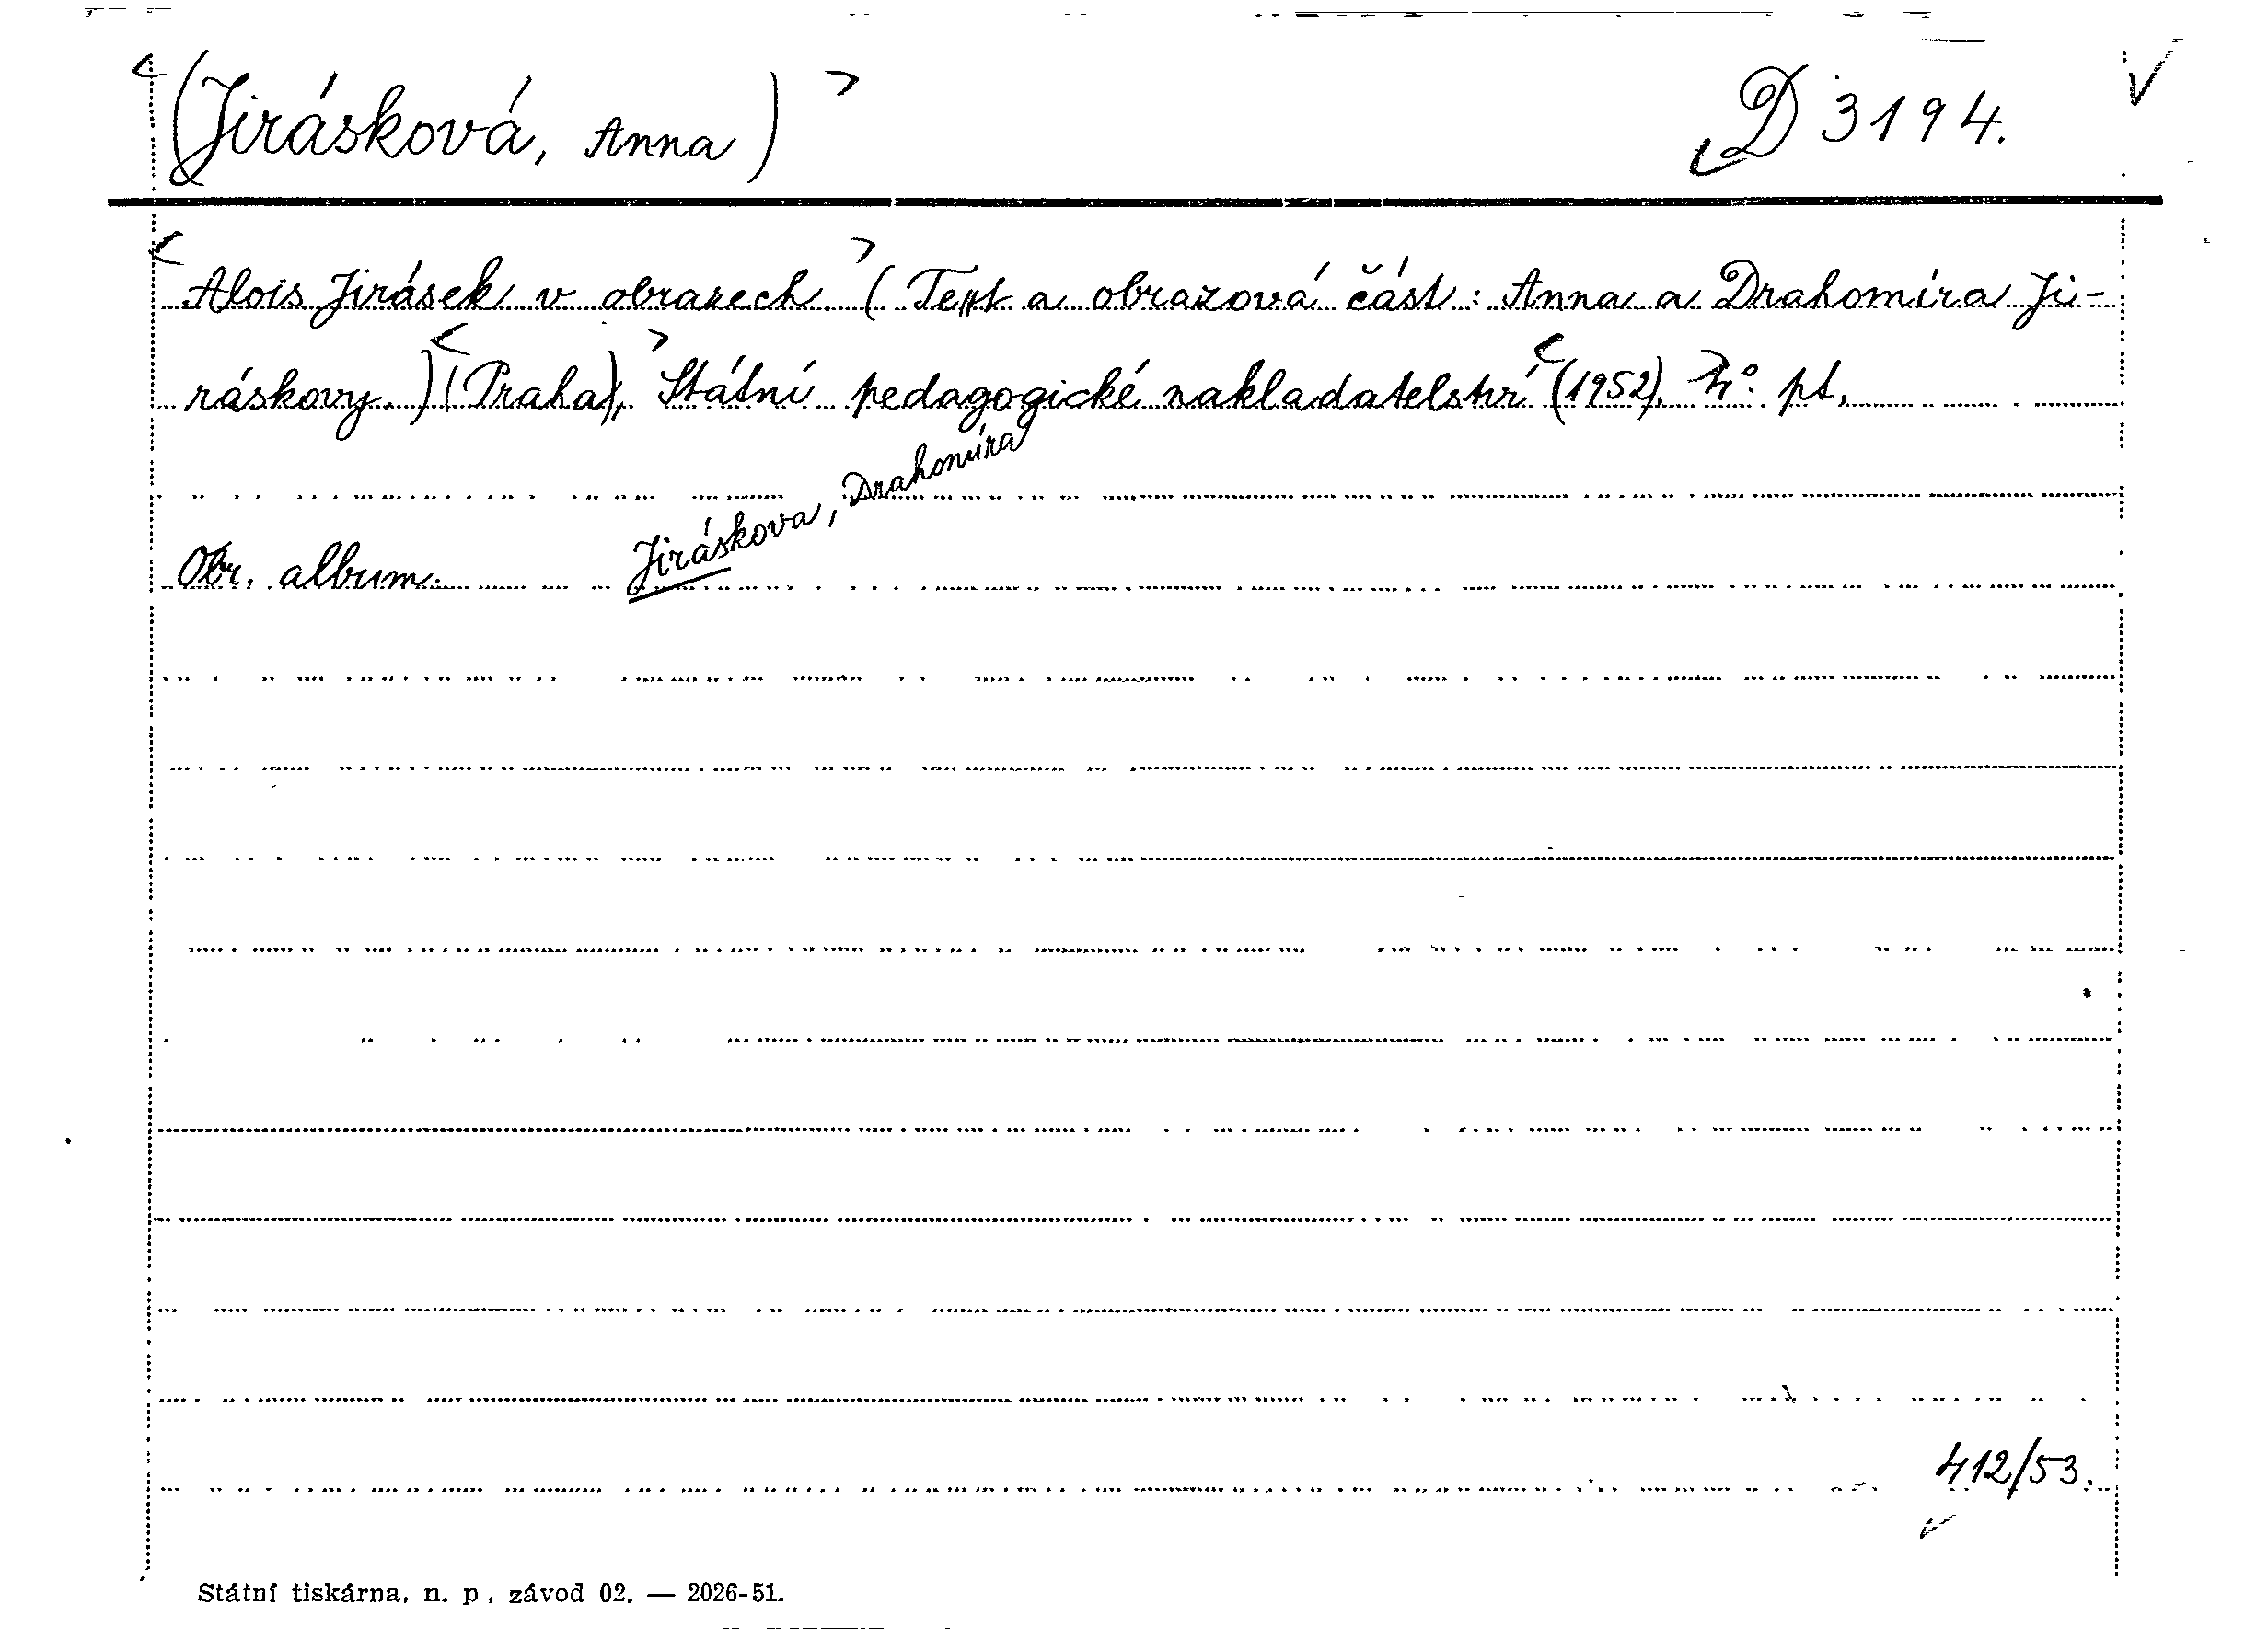 (Jirásková, Anna)
D 3194.
Alois Jirásek v obrazech. (Text a obrazová část: Anna a Drahomíra Ji-
ráskovy.) (Praha), Státní pedagogické nakladatelství (1952). 4°. pt.
Jiráskova, Drahomíra
Obr. album.
412/53.
Státní tiskárna, n. p., závod 02. — 2026-51.